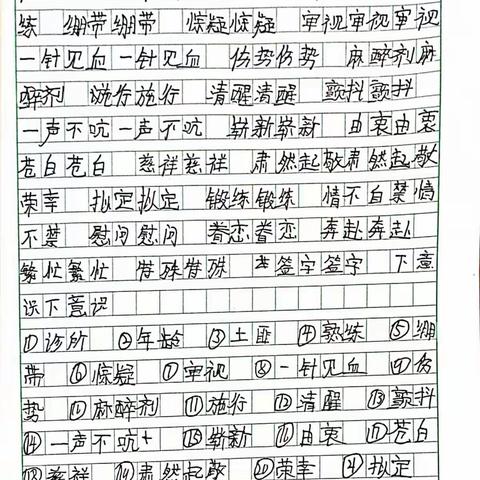 练 绷带绷带 惊疑惊疑 审视审视审视
一针见血 一针见血 伤势伤势 麻醉剂麻
醉剂 施行施行 清醒清醒 颤抖颤抖
一声不吭一声不吭 崭新崭新 由衷由衷
苍白苍白 慈祥慈祥 肃然起敬肃然起敬
荣幸 拟定拟定 锻练锻练 情不自禁情
不禁 慰问慰问 眷恋眷恋 奔赴奔赴
繁忙繁忙 特殊特殊 签字签字 下意
识下意识
①诊所 ②年龄 ③土匪 ④熟练 ⑤绷
带 ⑥惊疑 ⑦审视 ⑧一针见血 ⑨伤
势 ⑩麻醉剂 ⑪施行 ⑫清醒 ⑬颤抖
⑭一声不吭 ⑮崭新 ⑯由衷 ⑰苍白
⑱慈祥 ⑲肃然起敬 ⑳荣幸 ㉑拟定